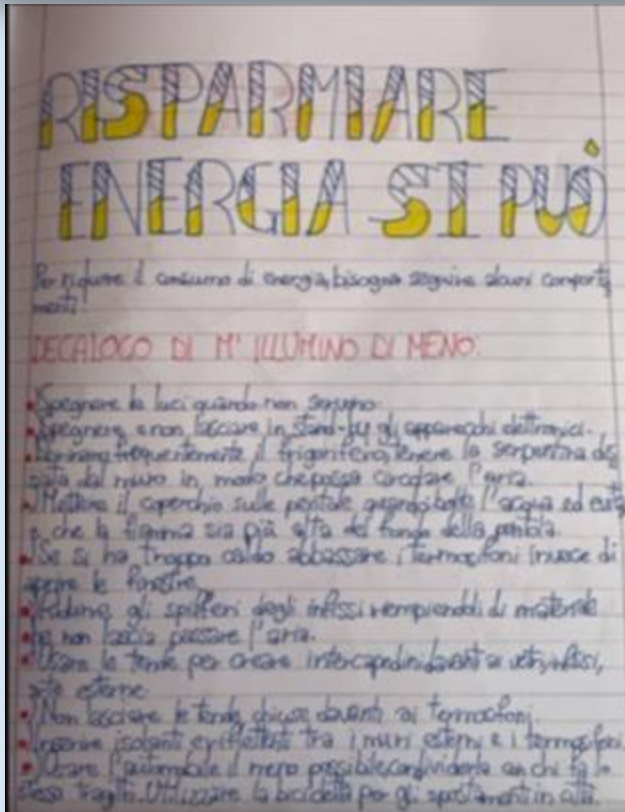 RISPARMIARE
ENERGIA SI PUÒ
Per ridurre il consumo di energia, bisogna seguire alcuni comporta
menti:
DECALOGO DI M'ILLUMINO DI MENO:
Spegnere le luci quando non servono.
Spegnere e non lasciare in stand-by gli apparecchi elettronici.
frequentemente il frigorifero, tenere la serpentina di
dal muro in modo che possa circolare l'aria.
Mettere il coperchio sulle pentole quando bolle l'acqua ed
che la fiamma sia più alta del fondo della pentola.
Se si ha troppo caldo abbassare i termosifoni invece di
aprire le finestre.
Ridurre gli spifferi degli infissi riempiendoli di materiale
non lascia passare l'aria.
Usare le tende per creare intercapedini davanti ai vetri, infissi,
esterne
Non lasciare le tende chiuse davanti ai termosifoni.
Inserire isolanti e riflettenti tra i muri esterni e i termosifoni.
Usare l'automobile il meno possibile, condividerla con chi fa lo
stesso tragitto. Utilizzare la bicicletta per gli spostamenti in città